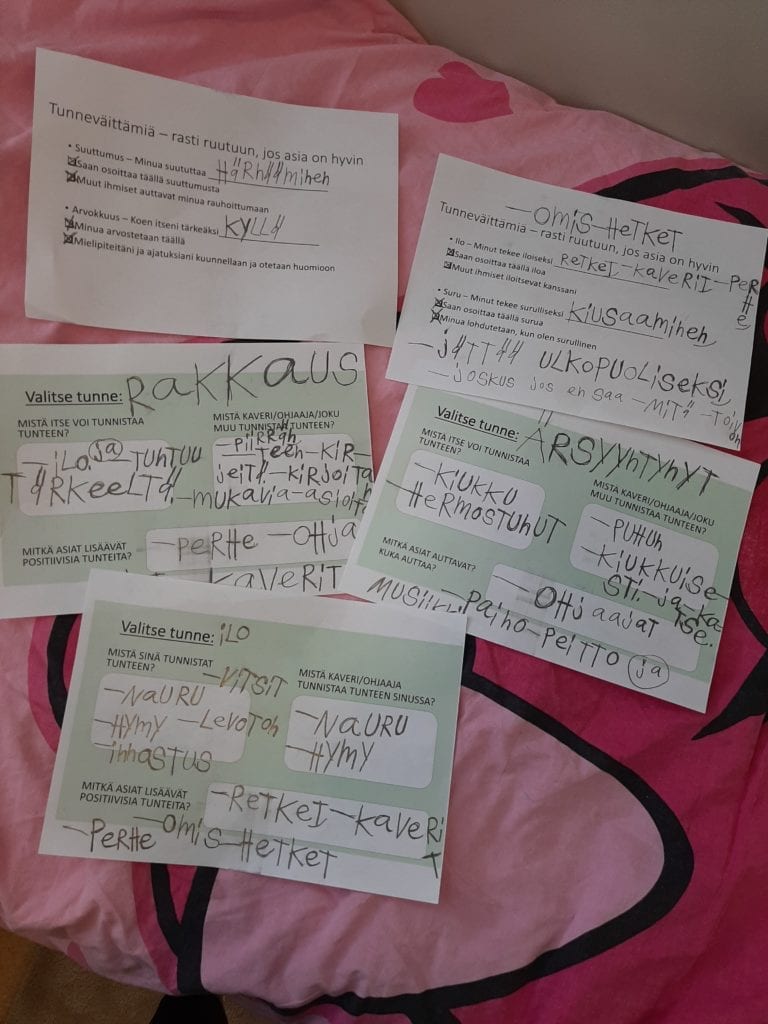 Tunneväittämiä – rasti ruutuun, jos asia on hyvin
• Suuttumus – Minua suututtaa HäRhääMiheh
Saan osoittaa täällä suuttumusta
Muut ihmiset auttavat minua rauhoittumaan
• Arvokkuus – Koen itseni tärkeäksi KYLLä
Minua arvostetaan täällä
Mielipiteitäni ja ajatuksiani kuunnellaan ja otetaan huomioon
–OMiS–HeTKeT
Tunneväittämiä – rasti ruutuun, jos asia on hyvin
• Ilo – Minut tekee iloiseksi ReTKeI–KaVeRiT–PeRHe
Saan osoittaa täällä iloa
Muut ihmiset iloitsevat kanssani
• Suru – Minut tekee surulliseksi KiUSaaMiheh
Saan osoittaa täällä surua
Minua lohdutetaan, kun olen surullinen
–jäTTää ULKoPUoLiSeKSi
–joSKUS joS eh Saa –MiTä –Toivoh
Valitse tunne: RaKKaUS
MISTÄ ITSE VOI TUNNISTAA
TUNTEEN?
–iLo ja TUhTUU
TäRKeeLTä
MISTÄ KAVERI/OHJAAJA/JOKU
MUU TUNNISTAA TUNTEEN?
–PiiRRäh
Teeh–KiR–
jeiTä–KiRjoiTah
–MUKaVia–aSioiTa
MITKÄ ASIAT LISÄÄVÄT
POSITIIVISIA TUNTEITA?
–PeRHe –OHja
KaVeRiT
Valitse tunne: ÄRSYYhTYhYT
MISTÄ ITSE VOI TUNNISTAA
TUNTEEN?
–KiUKKU
–HeRMoSTUhUT
MISTÄ KAVERI/OHJAAJA/JOKU
MUU TUNNISTAA TUNTEEN?
–PUHUh
–KiUKKUiSe–
STi–ja–Ka
TSe.
MITKÄ ASIAT AUTTAVAT?
KUKA AUTTAA?
–OHj aajaT
MUSiiKKi –Paiho–PeiTTo ja
Valitse tunne: iLo
MISTÄ SINÄ TUNNISTAT
TUNTEEN?
–ViTSiT
–NaURU
–HYMY –LeVoToh
ihhoSTUS
MISTÄ KAVERI/OHJAAJA
TUNNISTAA TUNTEEN SINUSSA?
–NaURU
–HYMY
MITKÄ ASIAT LISÄÄVÄT
POSITIIVISIA TUNTEITA?
–ReTKeI–KaVeRiT
–PeRHe –OMiS–HeTKeT